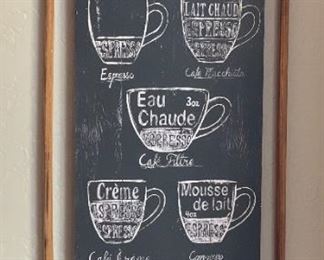 ESPRESSO
Espresso
LAIT CHAUD
ESPRESSO
ESPRESSO
Café Macchiato
Eau
Chaude 3oz
ESPRESSO
Café Filtre
Crème
ESPRESSO
ESPRESSO
Café
Mousse
de lait
4oz
ESPRESSO
ESPRESSO